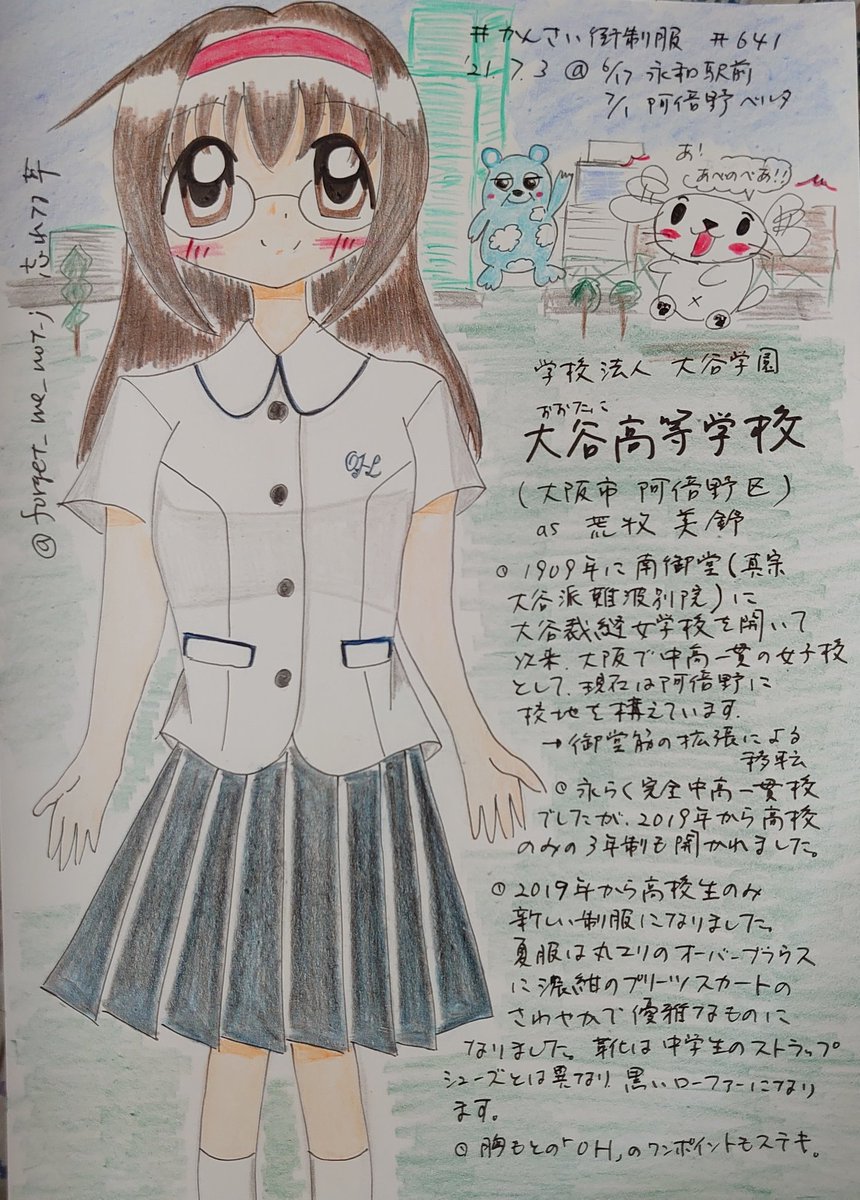 #かんさい街制服 #641
'21.7.3 @ 6/17 永和駅前
7/1 阿倍野ベルタ
あ!
あべのべあ!!
@forget_me_not_j 忘れな草
学校法人 大谷学園
おおたに
大谷高等学校
(大阪市 阿倍野区)
as 荒牧 美鈴
OH
1909年に南御堂(真宗
大谷派難波別院)に
大谷裁縫女学校を開いて
以来、大阪で中高一貫の女子校
として、現在は阿倍野に
校地を構えています。
→御堂筋の拡張による
移転
永らく完全中高一貫校
でしたが、2019年から高校
のみの3年制も開かれました。
2019年から高校生のみ
新しい制服になりました。
夏服は丸エリのオーバーブラウス
に濃紺のプリーツスカートの
さわやかで優雅なものに
なりました。靴は中学生のストラップ
シューズとは異なり黒いローファーになり
ます。
胸もとの「OH」のワンポイントもステキ。